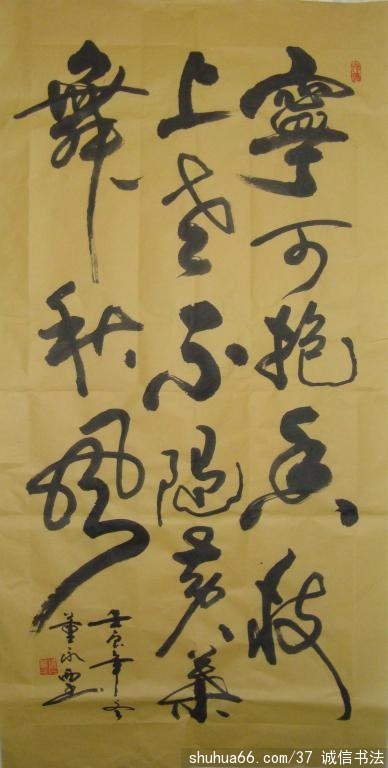 寧可抱香枝
上老不隨黄葉
舞秋風
寅年冬
董永
shuhua66.com/37 诚信书法